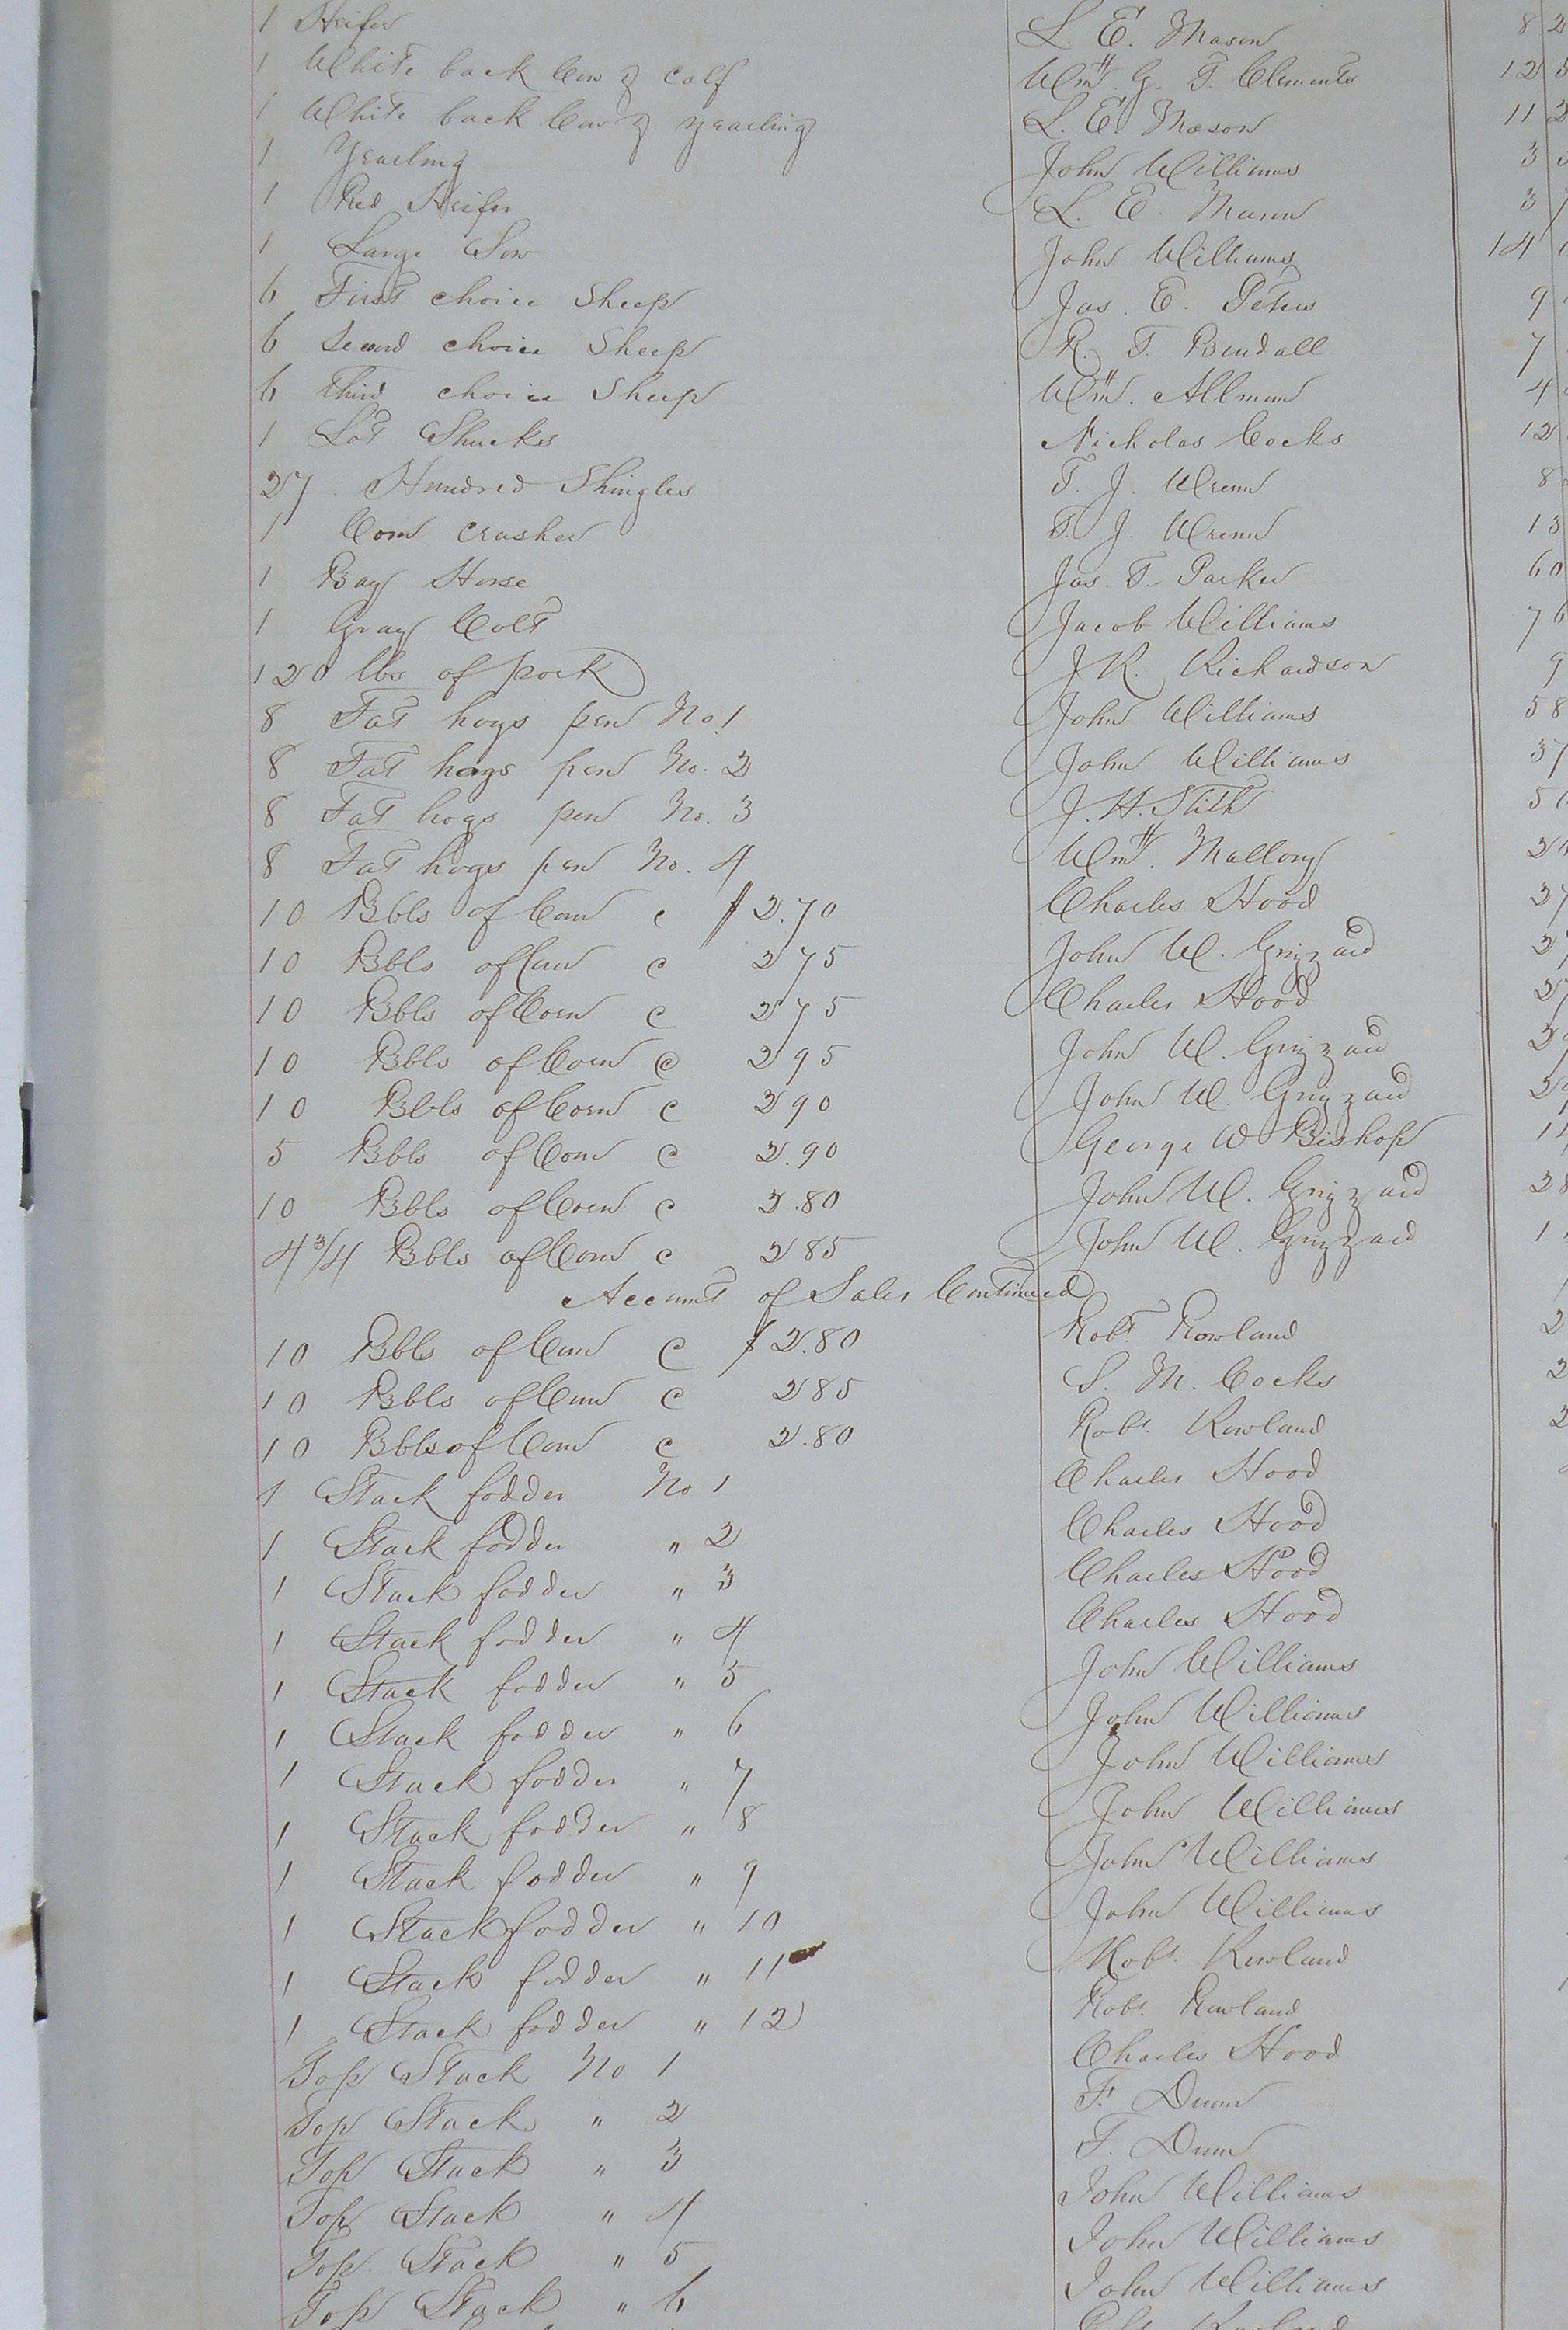 1 Heifer L. E. Mason 8
1 White back Cow & Calf Wm. G. T. Clements 12
1 White back Cow & yearling L. E. Mason 11
1 Yearling John Williams 3
1 Red Heifer L. E. Mason 3
1 Large Sow John Williams 14
6 First choice Sheep Jas. E. Peters 9
6 Second choice Sheep R. T. Bendall 7
6 Third choice Sheep Wm. Allmon 4
1 Lot Shucks Nicholas Cocks 12
27 Hundred Shingles T. J. Wrenn 8
1 Corn crusher T. J. Wrenn 13
1 Bay Horse Jas. T. Parker 60
1 Gray Colt Jacob Williams 76
120 lbs of pork J. R. Richardson 9
8 Fat hogs pen No. 1 John Williams 58
8 Fat hogs pen No. 2 John Williams 37
8 Fat hogs pen No. 3 J. H. Stith
8 Fat hogs pen No. 4 Wm. Mallory
10 Bbls of Corn c $2.70 Charles Hood 27
10 Bbls of Corn c 275 John W. Grizzard
10 Bbls of Corn c 275 Charles Hood 27
10 Bbls of Corn c 295 John W. Grizzard
10 Bbls of Corn c 290 John W. Grizzard
5 Bbls of Corn c 2.90 George W Bishop
10 Bbls of Corn c 2.80 John W. Grizzard 28
4 3/4 Bbls of Corn c 285 John W. Grizzard 1
Account of Sales Continued
10 Bbls of Corn c $2.80 Robt. Rowland 2
10 Bbls of Corn c 285 S. M. Cocks 2
10 Bbls of Corn c 2.80 Robt. Rowland 2
1 Stack fodder No 1 Charles Hood
1 Stack fodder " 2 Charles Hood
1 Stack fodder " 3 Charles Hood
1 Stack fodder " 4 Charles Hood
1 Stack fodder " 5 John Williams
1 Stack fodder " 6 John Williams
1 Stack fodder " 7 John Williams
1 Stack fodder " 8 John Williams
1 Stack fodder " 9 John Williams
1 Stack fodder " 10 John Williams
1 Stack fodder " 11 Robt. Rowland
1 Stack fodder " 12 Robt. Rowland
Top Stack No 1 Charles Hood
Top Stack " 2 F. Dunn
Top Stack " 3 F. Dunn
Top Stack " 4 John Williams
Top Stack " 5 John Williams
Top Stack " 6 John Williams